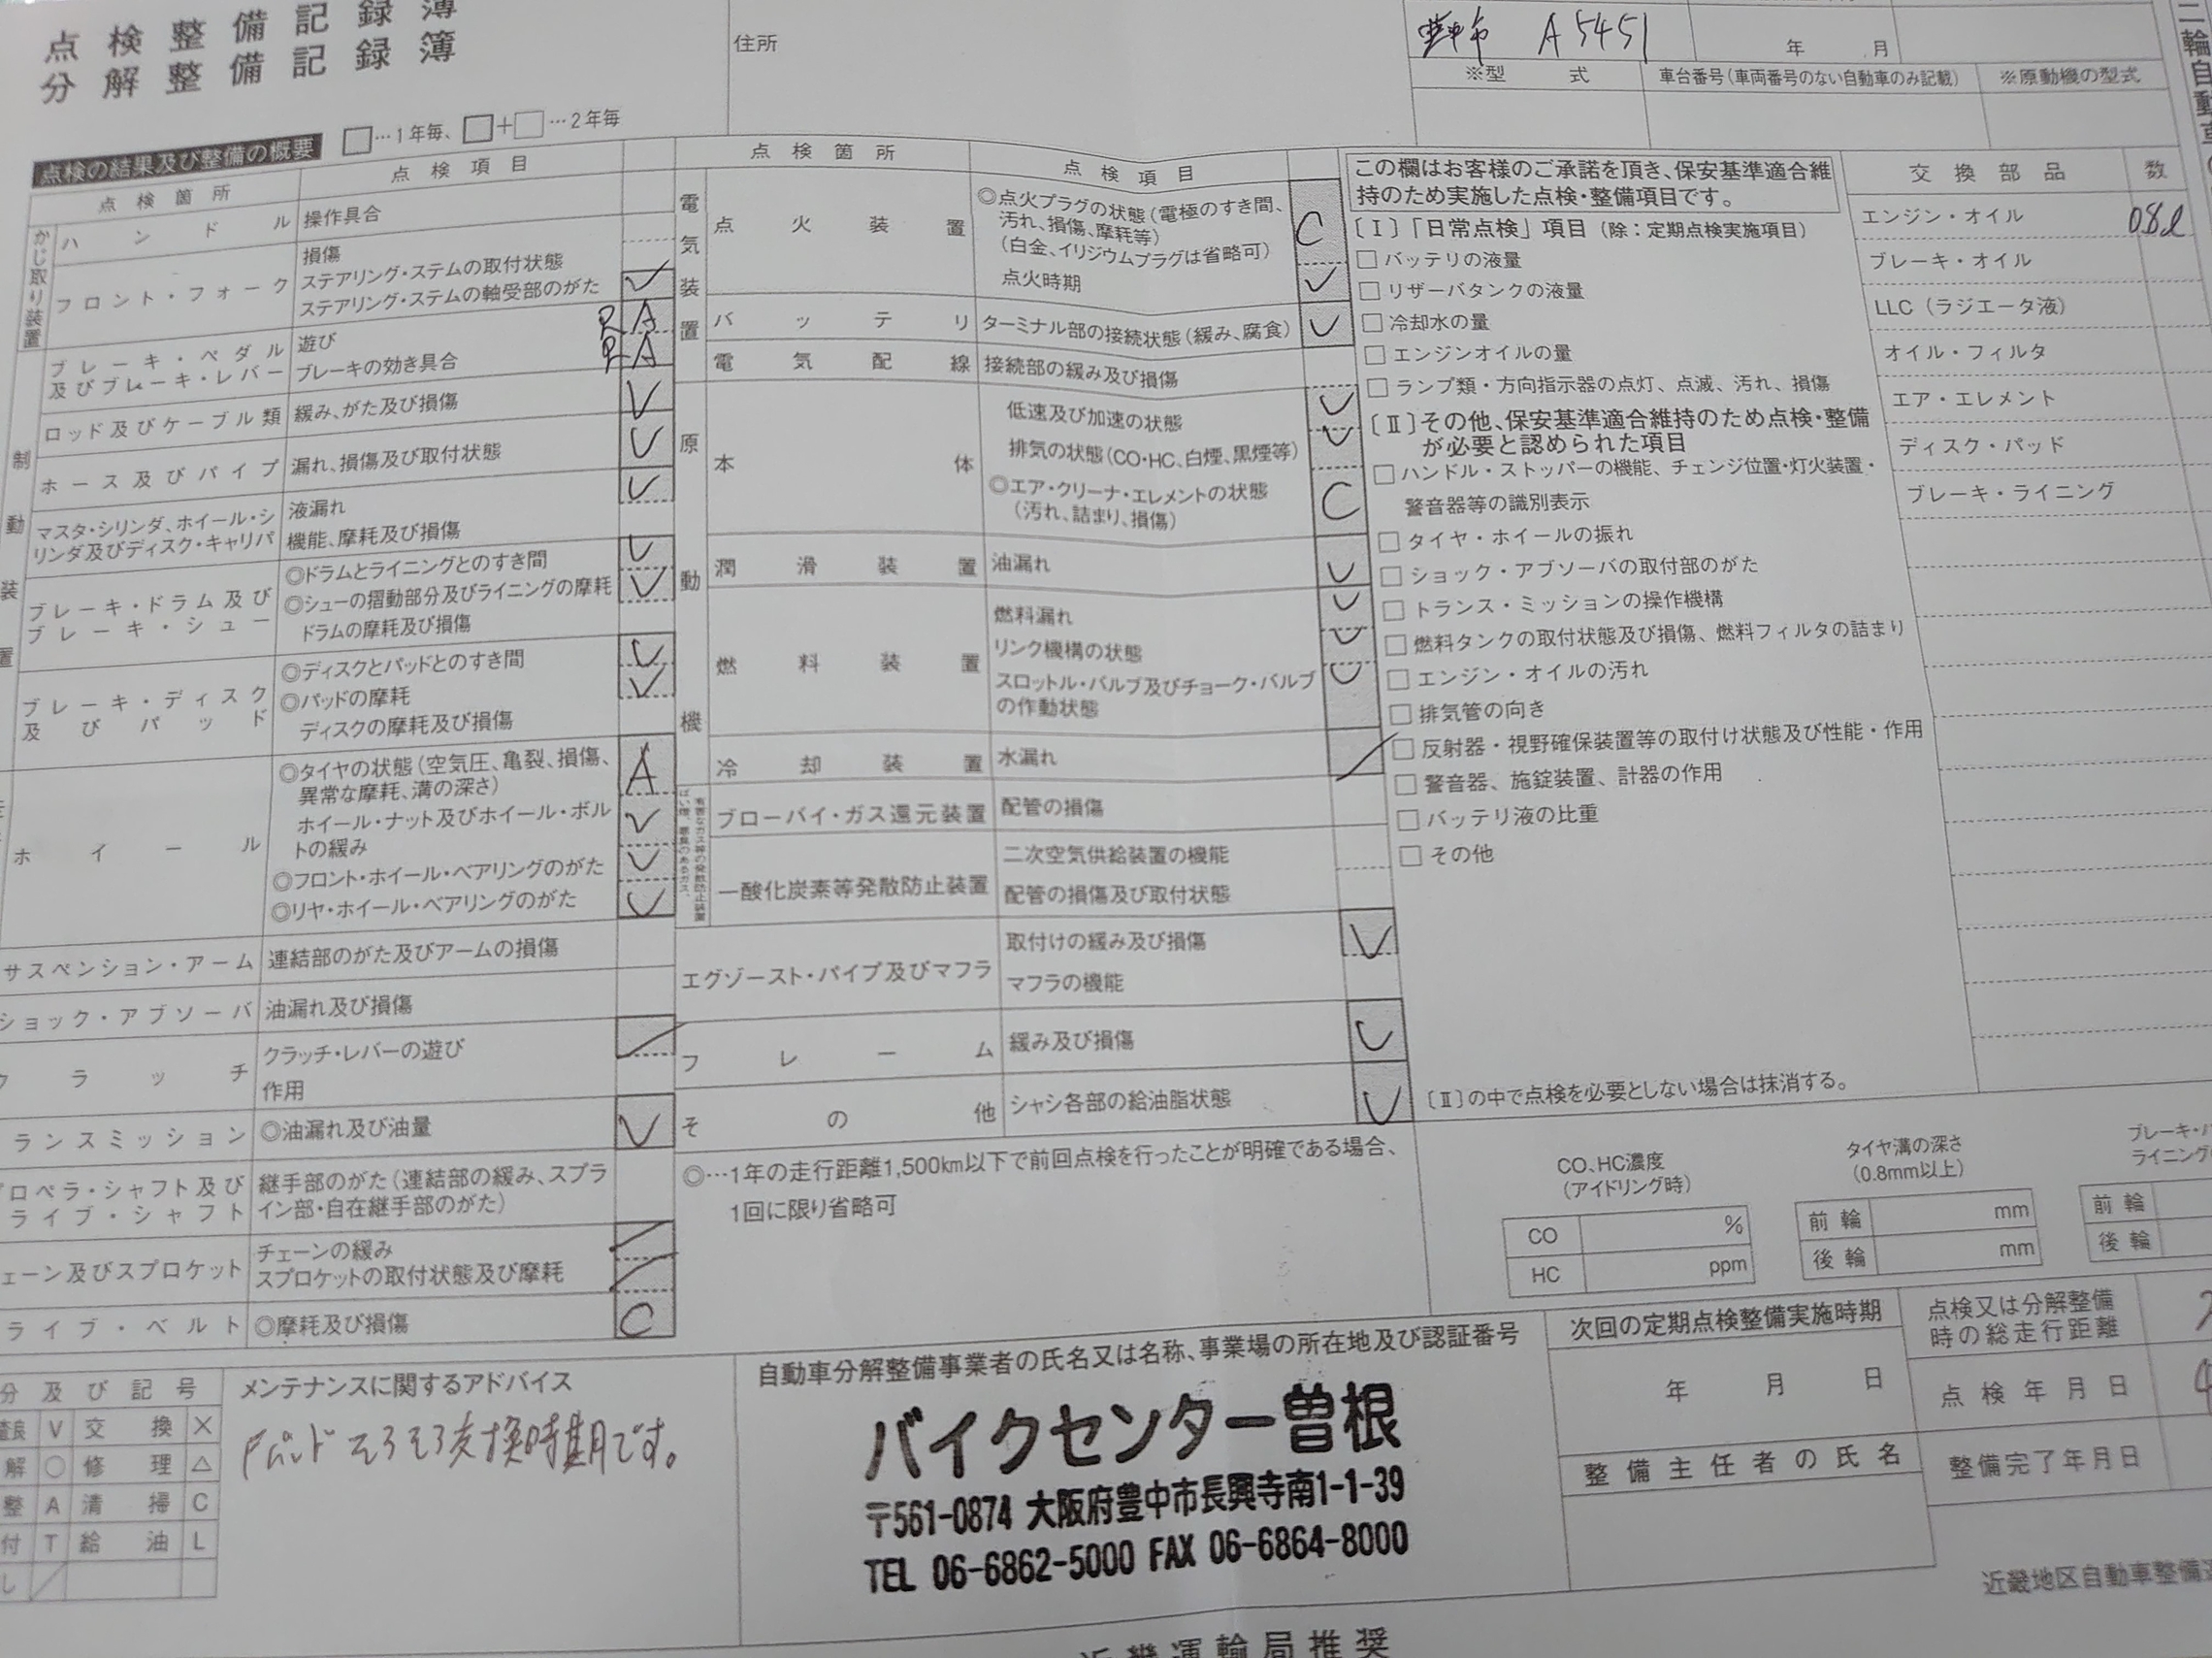 点検整備記録簿
分解整備記録簿
住所
豊中市 A5451
年 月
※型 式
車台番号(車両番号のない自動車のみ記載)
※原動機の型式
点検の結果及び整備の概要
□…1年毎、□+□…2年毎
点検箇所 点検項目
かじ取り装置
ハンドル 操作具合
フロント・フォーク
損傷
ステアリング・ステムの取付状態
ステアリング・ステムの軸受部のがた ✓
制動装置
ブレーキ・ペダル及びブレーキ・レバー
遊び R A
ブレーキの効き具合 R A
ロッド及びケーブル類 緩み、がた及び損傷 V
ホース及びパイプ 漏れ、損傷及び取付状態 V
マスタ・シリンダ、ホイール・シリンダ及びディスク・キャリパ
液漏れ V
機能、摩耗及び損傷
ブレーキ・ドラム及びブレーキ・シュー
◎ドラムとライニングとのすき間 V
◎シューの摺動部分及びライニングの摩耗 V
ドラムの摩耗及び損傷
ブレーキ・ディスク及びパッド
◎ディスクとパッドとのすき間 V
◎パッドの摩耗 V
ディスクの摩耗及び損傷
ホイール
◎タイヤの状態(空気圧、亀裂、損傷、
異常な摩耗、溝の深さ) A
ホイール・ナット及びホイール・ボル
トの緩み V
◎フロント・ホイール・ベアリングのがた V
◎リヤ・ホイール・ベアリングのがた V
サスペンション・アーム 連結部のがた及びアームの損傷
ショック・アブソーバ 油漏れ及び損傷
ラッチ
クラッチ・レバーの遊び /
作用
ランスミッション ◎油漏れ及び油量 V
ロペラ・シャフト及び
ライブ・シャフト
継手部のがた(連結部の緩み、スプラ
イン部・自在継手部のがた)
ェーン及びスプロケット
チェーンの緩み /
スプロケットの取付状態及び摩耗 /
ライブ・ベルト ◎摩耗及び損傷 C
点検箇所 点検項目
電気装置
点火装置
◎点火プラグの状態(電極のすき間、
汚れ、損傷、摩耗等)
(白金、イリジウムプラグは省略可) C
点火時期 V
バッテリ ターミナル部の接続状態(緩み、腐食) V
電気配線 接続部の緩み及び損傷
原動機
本体
低速及び加速の状態 V
排気の状態(CO・HC、白煙、黒煙等) V
◎エア・クリーナ・エレメントの状態
(汚れ、詰まり、損傷) C
潤滑装置 油漏れ V
燃料装置
燃料漏れ V
リンク機構の状態 V
スロットル・バルブ及びチョーク・バルブ
の作動状態 V
冷却装置 水漏れ /
ブローバイ・ガス還元装置 配管の損傷
一酸化炭素等発散防止装置
二次空気供給装置の機能
配管の損傷及び取付状態
エグゾースト・パイプ及びマフラ
取付けの緩み及び損傷 V
マフラの機能
フレーム 緩み及び損傷 V
その他 シャシ各部の給油脂状態 V
◎…1年の走行距離1,500km以下で前回点検を行ったことが明確である場合、
1回に限り省略可
この欄はお客様のご承諾を頂き、保安基準適合維
持のため実施した点検・整備項目です。
〔Ⅰ〕「日常点検」項目(除:定期点検実施項目)
□バッテリの液量
□リザーバタンクの液量
□冷却水の量
□エンジンオイルの量
□ランプ類・方向指示器の点灯、点滅、汚れ、損傷
〔Ⅱ〕その他、保安基準適合維持のため点検・整備
が必要と認められた項目
□ハンドル・ストッパーの機能、チェンジ位置・灯火装置・
警音器等の識別表示
□タイヤ・ホイールの振れ
□ショック・アブソーバの取付部のがた
□トランス・ミッションの操作機構
□燃料タンクの取付状態及び損傷、燃料フィルタの詰まり
□エンジン・オイルの汚れ
□排気管の向き
□反射器・視野確保装置等の取付け状態及び性能・作用
□警音器、施錠装置、計器の作用
□バッテリ液の比重
□その他
〔Ⅱ〕の中で点検を必要としない場合は抹消する。
交換部品 数
エンジン・オイル 0.8ℓ
ブレーキ・オイル
LLC(ラジエータ液)
オイル・フィルタ
エア・エレメント
ディスク・パッド
ブレーキ・ライニング
CO、HC濃度
(アイドリング時)
CO %
HC ppm
タイヤ溝の深さ
(0.8mm以上)
前輪 mm
後輪 mm
ライニング
前輪
後輪
分及び記号
V 交換 ×
解 ○ 修理 △
整 A 清掃 C
付 T 給油 L
し /
メンテナンスに関するアドバイス
Fパッド そろそろ交換時期です。
自動車分解整備事業者の氏名又は名称、事業場の所在地及び認証番号
バイクセンター曽根
〒561-0874 大阪府豊中市長興寺南1-1-39
TEL 06-6862-5000 FAX 06-6864-8000
次回の定期点検整備実施時期
年 月 日
整備主任者の氏名
点検又は分解整備
時の総走行距離
点検年月日
整備完了年月日
近畿地区自動車整備
近畿運輸局推奨